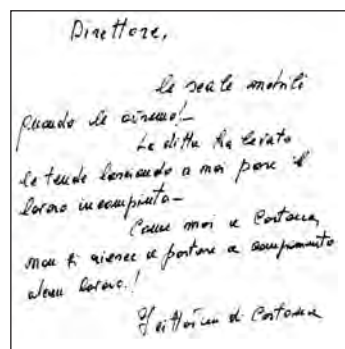 Direttore,
le scale mobili
quando le avremo!
La ditta ha levato
le tende lasciando a noi pare il
lavoro incompiuto -
Come mai a Cortona
non si riesce a portare a compimento
alcun lavoro!
di Cortona